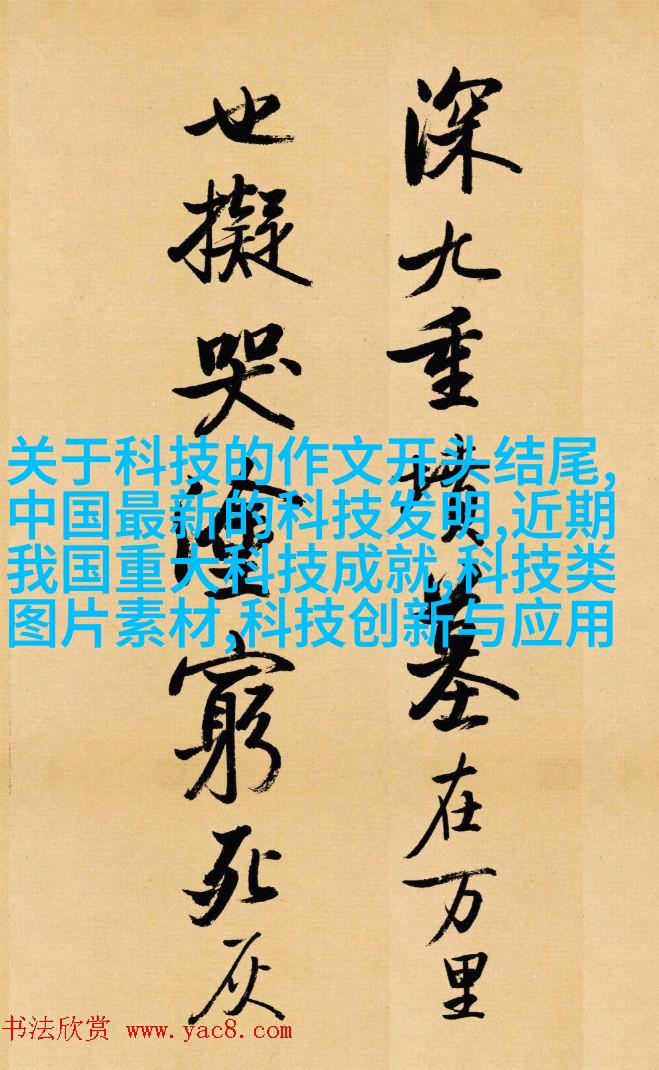 深九重墳墓在万里
也擬哭塗窮死灰
关于科技的作文开头结尾,
中国最新的科技发明,近期
我国重大科技成就,科技类
图片素材,科技创新与应用
书法欣赏 www.yac8.com